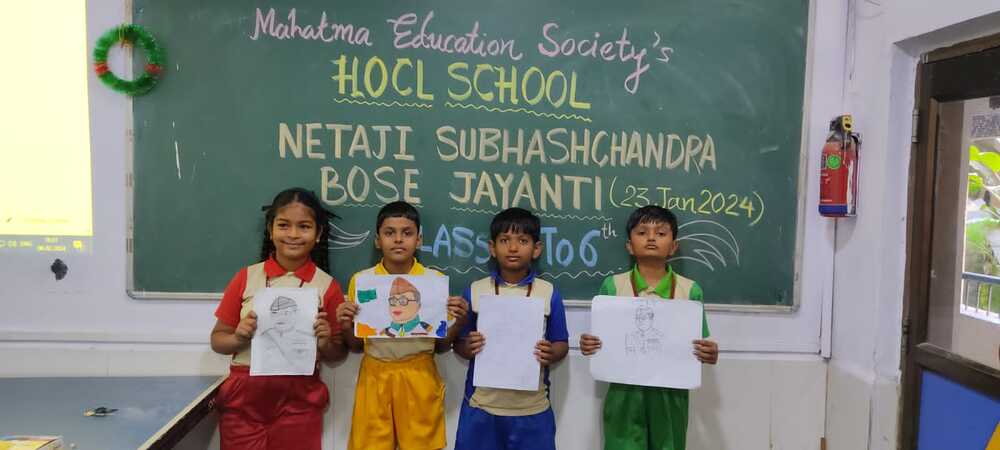 Mahatma Education Society's
HOCL SCHOOL
NETAJI SUBHASHCHANDRA
BOSE JAYANTI (23 Jan 2024)
TO 6th